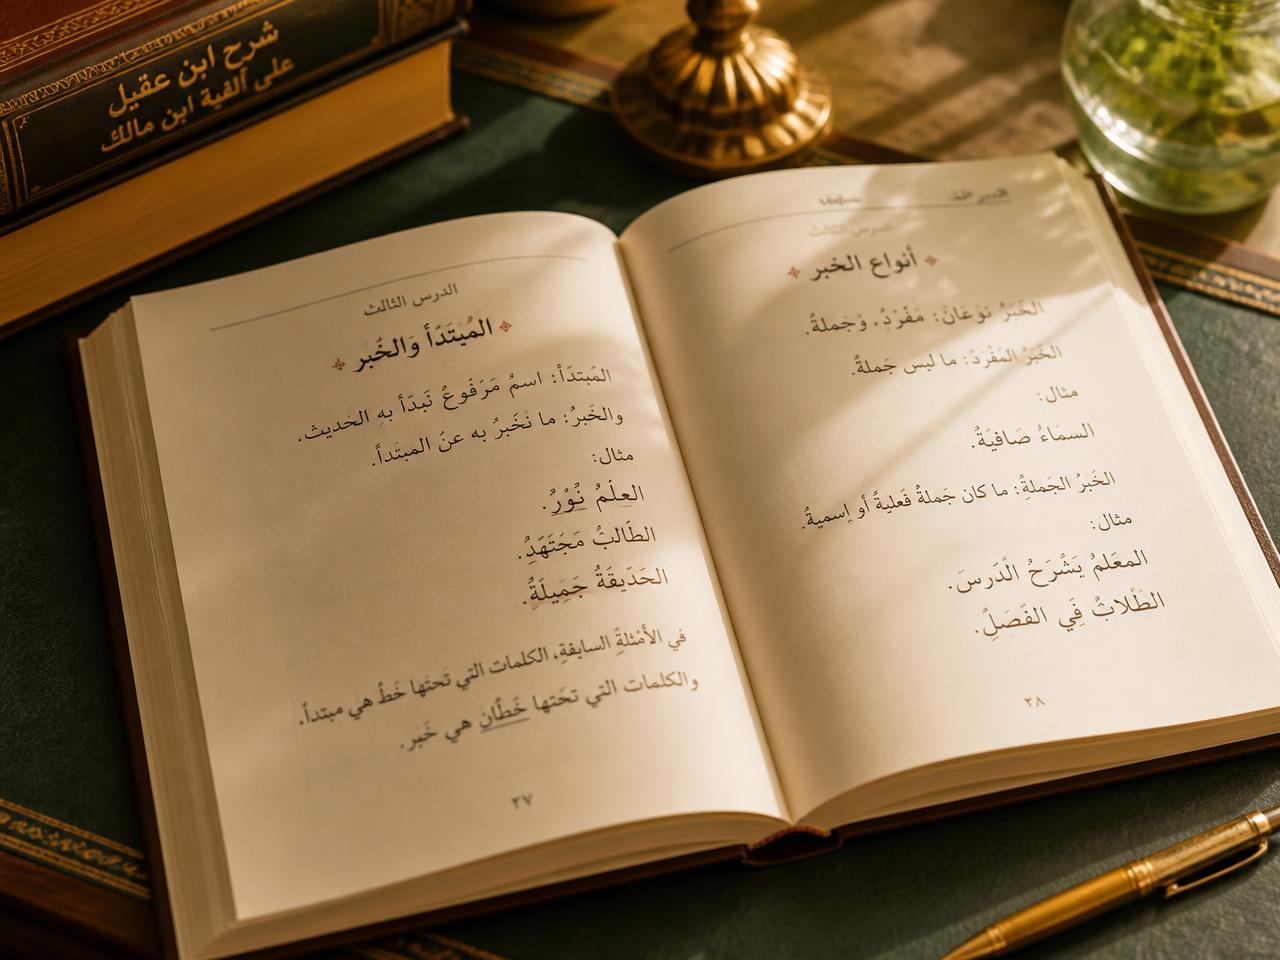 شرح ابن عقيل
على ألفية ابن مالك
الدرس الثالث
المُبتَدَأ وَالخَبر
المَبتدَأُ: اسمُ مَرَفُوعُ نَبدَأ بهِ الحَديث.
والخَبرُ: ما نَخَبرُ به عنُ المبتَدأ.
مثال:
العِلْمُ نُوْرُ.
الطَالبُ مَجَتَهَدُ.
الحَدَيقَةُ جَمِيلَةُ.
في الأمْثلةِ السابقةِ، الكلمات التي تَحتَها خَطُ هي مبتدأ.
والكلمات التي تحَتها خَطَّان هي خَبر.
٢٧
الدرس الثالث
أنواع الخبر
الخَبرُ نوَعَانَ: مَفْرَدُ، وَجَملةُ.
الخَبرُ المَفْرَدُ: ما ليس جَملةُ.
مثال:
السمَاءُ صَافيَةُ.
الخَبرُ الجَملةِ: ما كان جَملةُ فَعليةً أو إسميةُ.
مثال:
المعَلمُ يَشَرَحُ الْدَرسَ.
الطَلابُ فِي الفَصَلِ.
٢٨